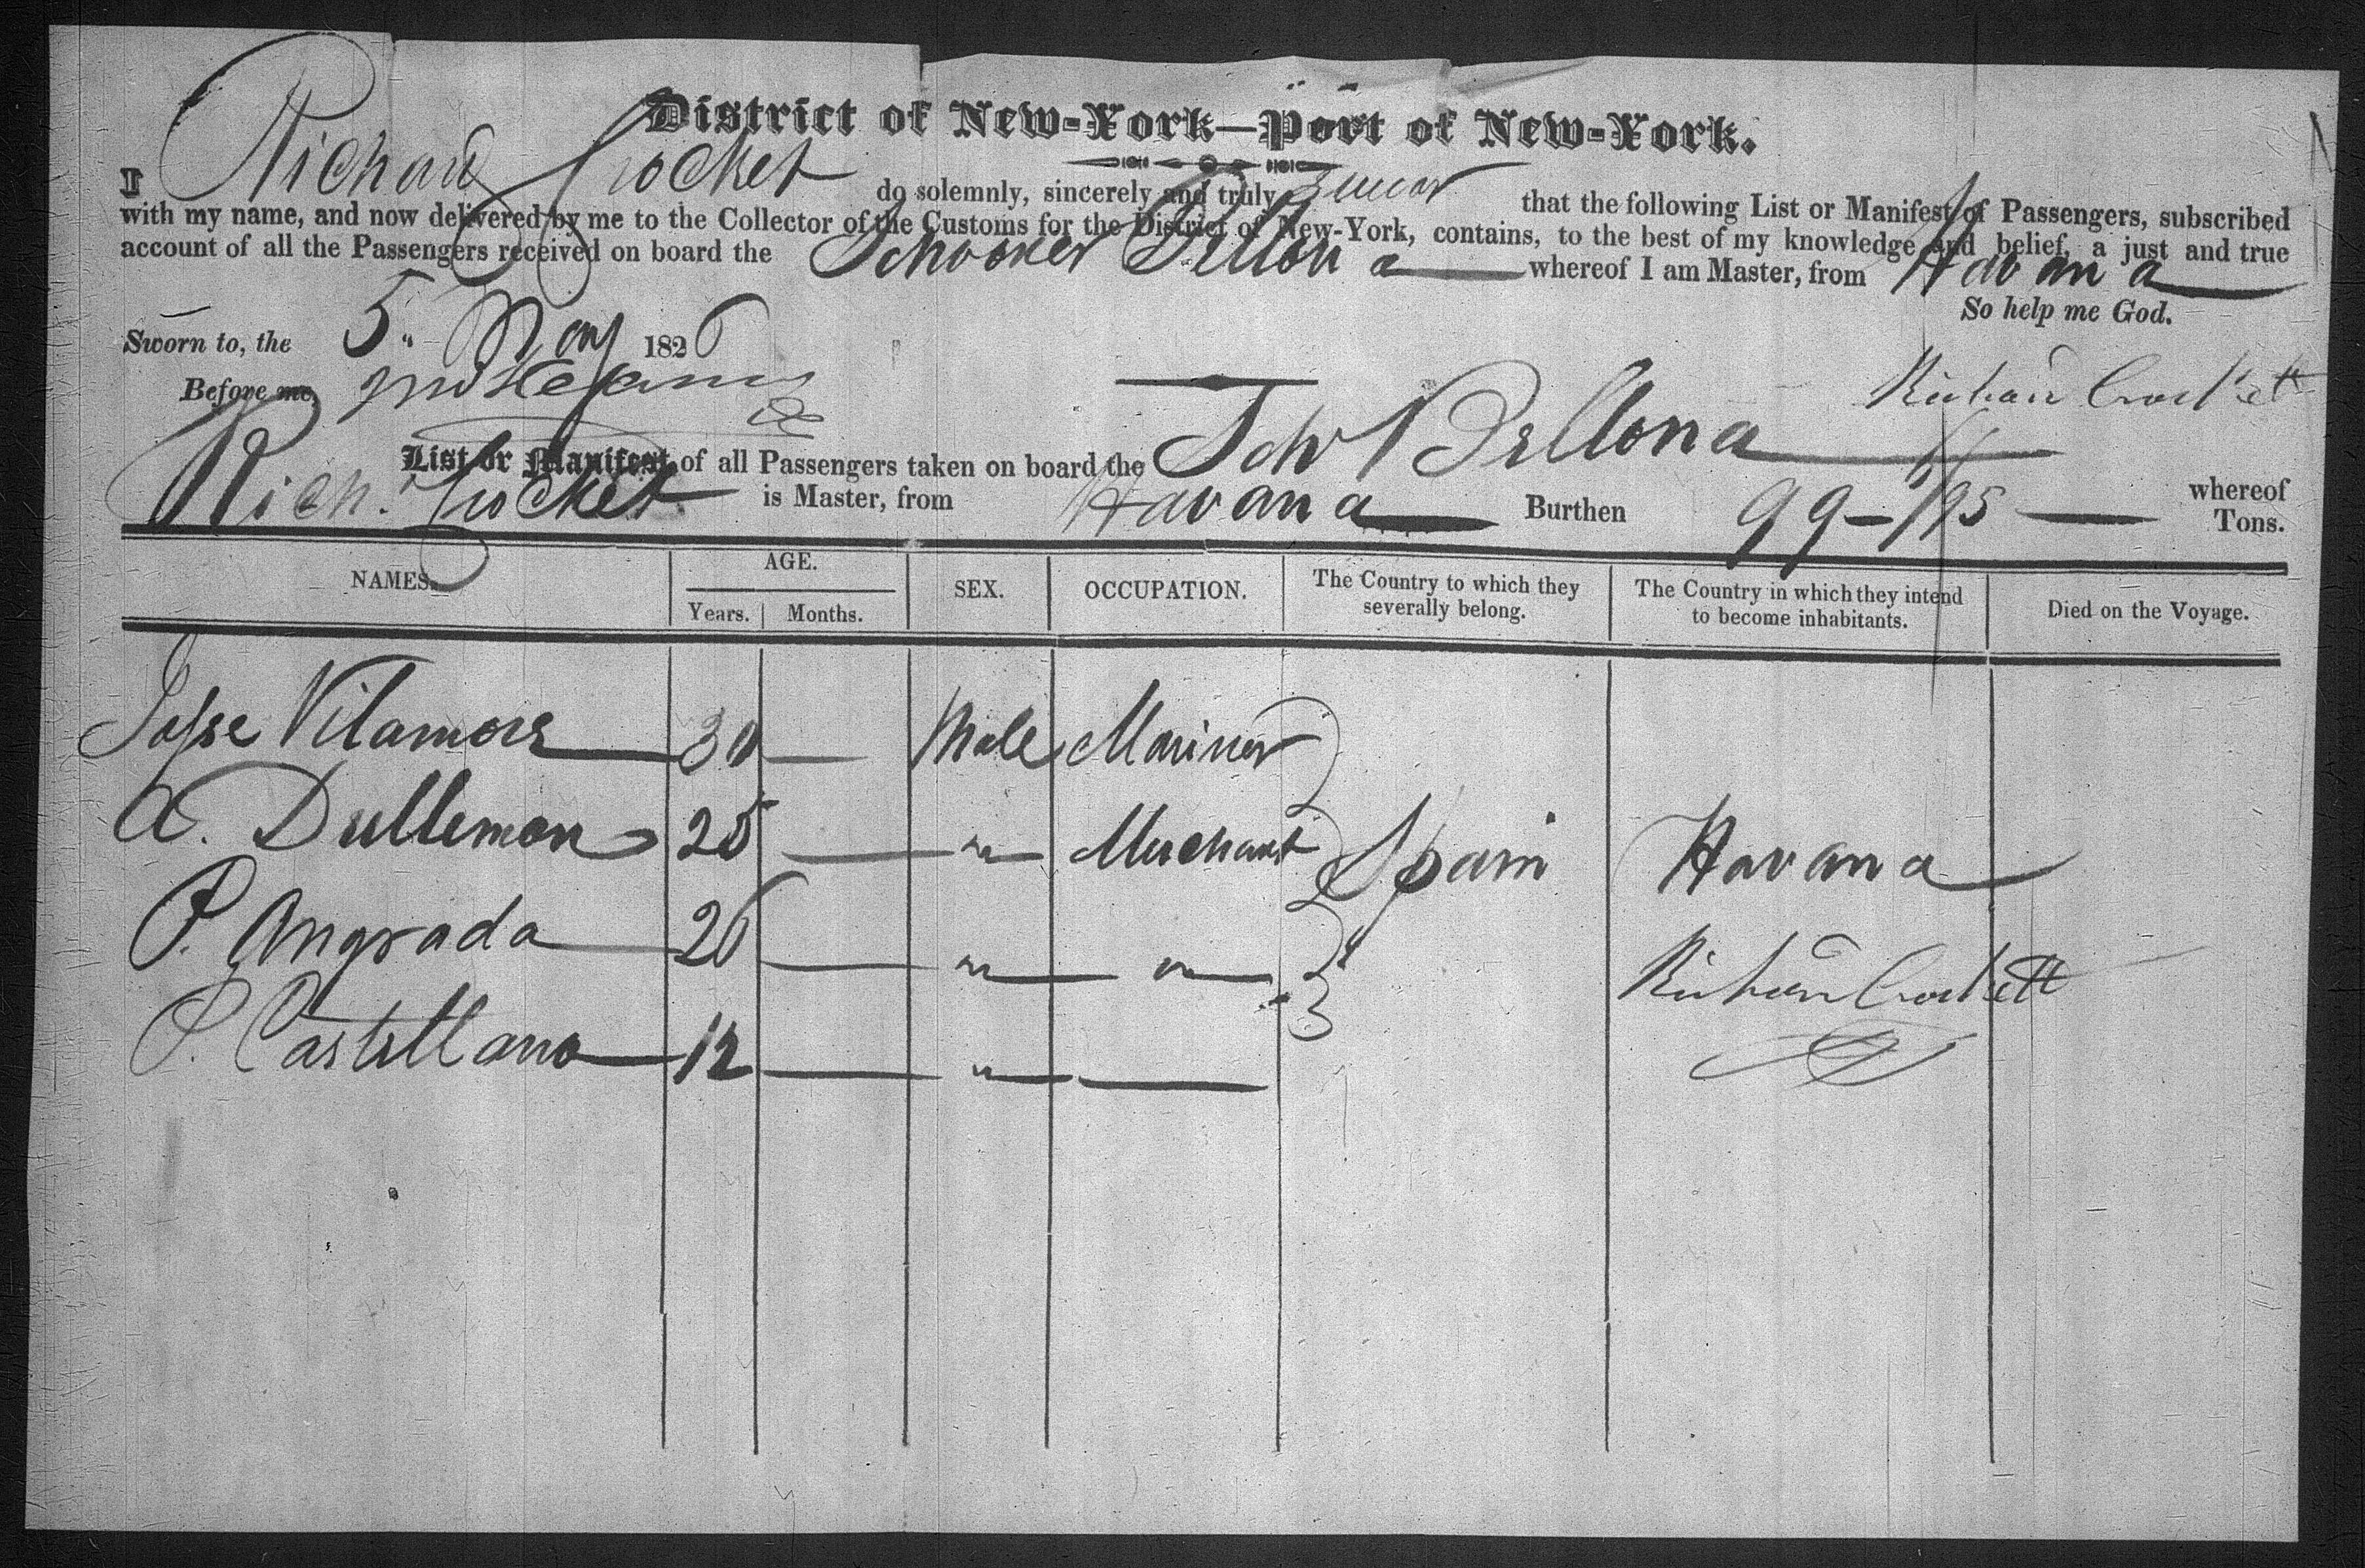 District of New-York—Port of New-York.
I Richard Crocket do solemnly, sincerely and truly Swear that the following List or Manifest of Passengers, subscribed
with my name, and now delivered by me to the Collector of the Customs for the District of New-York, contains, to the best of my knowledge and belief, a just and true
account of all the Passengers received on board the Schooner Bellona whereof I am Master, from Havana
So help me God.
Sworn to, the 5" May 1826
Before me,
Richard Crockett
List or Manifest of all Passengers taken on board the Schr Bellona whereof
Rich. Crocket is Master, from Havana Burthen 99-/95 Tons.
NAMES. AGE. SEX. OCCUPATION. The Country to which they severally belong. The Country in which they intend to become inhabitants. Died on the Voyage.
Years. Months.
Josse Vilamore 30 — Male Mariner
A. Dullemon 25 — " Merchant Spain Havana
P. Angrada 26 — " "
P. Castellano 12 — " —
Richard Crockett